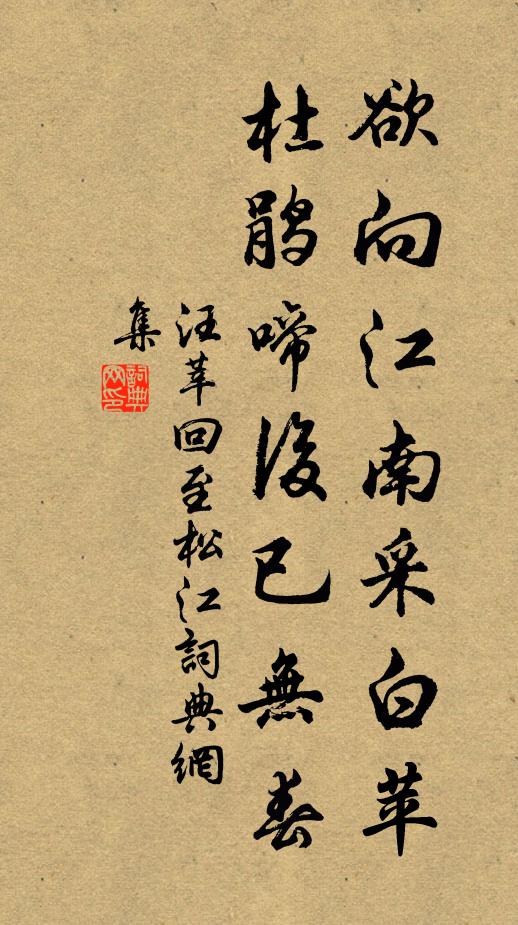 欲向江南采白苹
杜鹃啼後已無春
汪莘回至松江詞典網
集
詞典網印